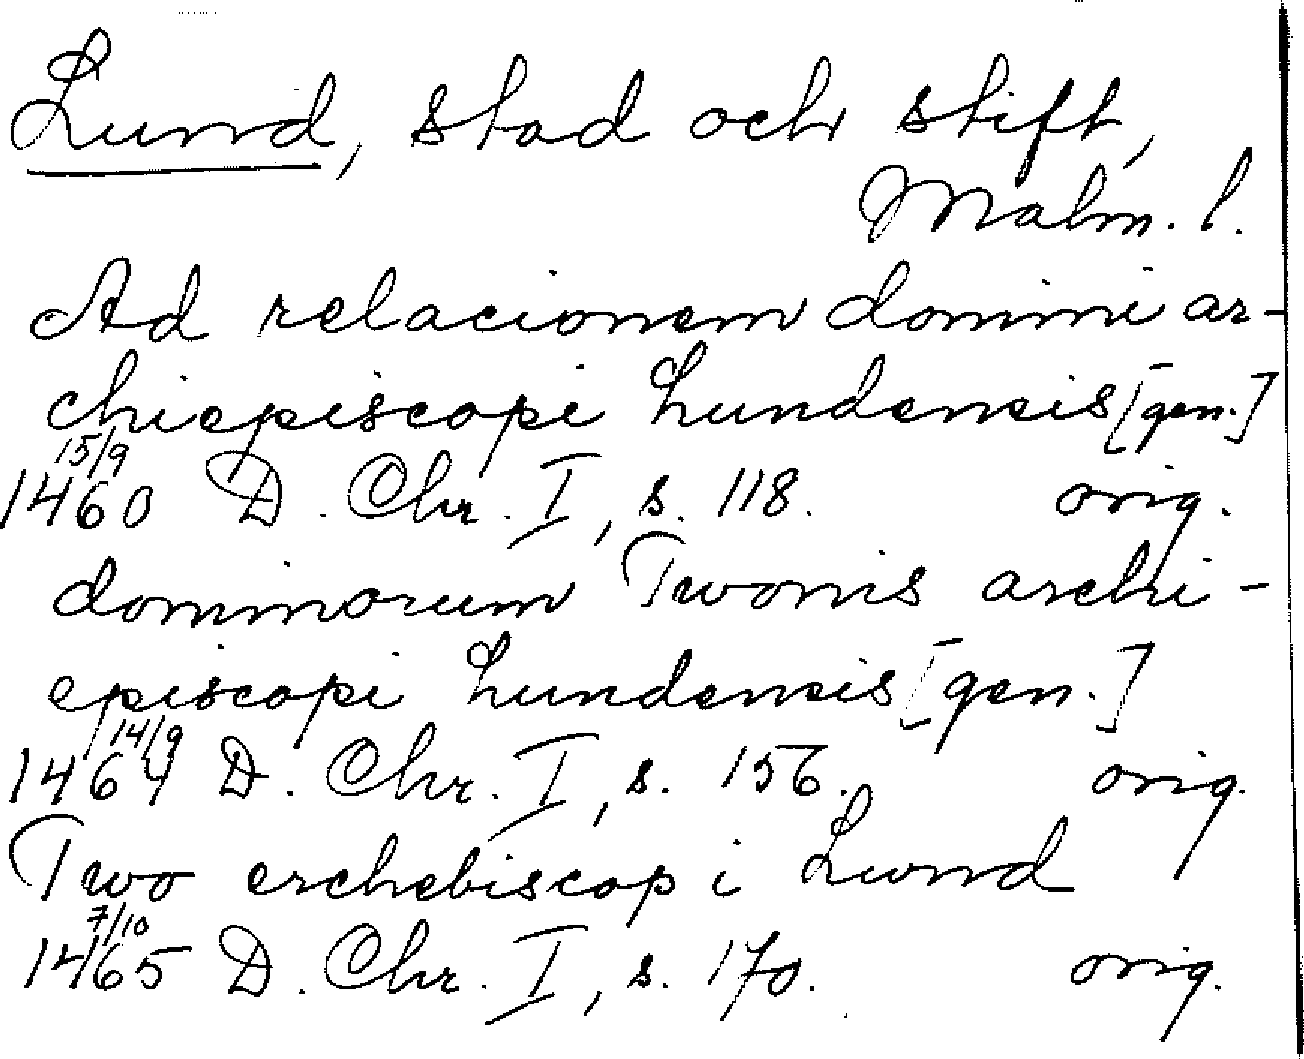 Lund, stad och stift,
Malm. l.
Ad relacionem domini ar-
chiepiscopi lundensis [gen.]
15/9
1460 D. Chr. I, s. 118. orig.
dominorum Twonis archi-
episcopi lundensis [gen.]
14/9
1464 D. Chr. I, s. 156. orig.
Two erchebiscop i Lund
7/10
1465 D. Chr. I, s. 170. orig.